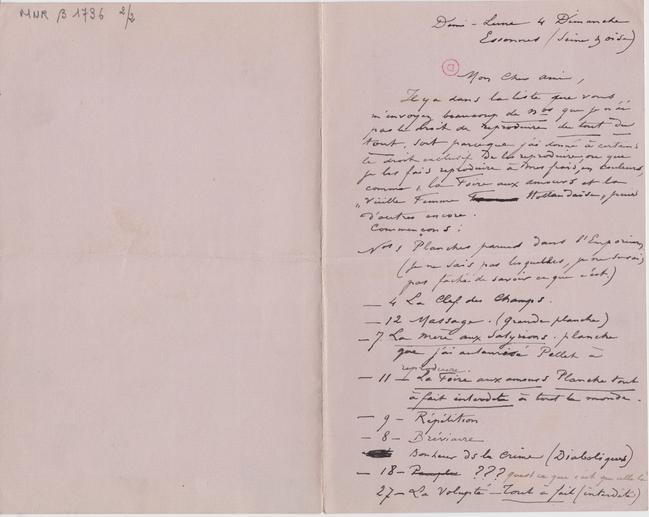 MNR β 1796 2/2
Demi-Lune 4 Dimanche
Essonnes (Seine & Oise)
Mon Cher ami,
Il y a dans la liste que vous
m'envoyez beaucoup de nos que je n'ai
pas le droit de reproduire du tout du
tout, soit parceque j'ai donné à certains
le droit exclusif de les reproduire, ou que
je les fais reproduire à mes frais, en couleurs,
comme "la Foire aux amours et la
"Vieille Femme Hollandaise, puis
d'autres encore.
Commençons :
Nos Planches parues dans l'Emporium
(Je ne sais pas lesquelles, je ne serais
pas faché de savoir ce que c'est)
— 4 La Clef des Champs.
— 12 Massage. (grande planche)
— 7 La mère aux Satyrions. planche
que j'ai autorisé Pellet à
reproduire.
— 11 — La Foire aux amours Planche tout
à fait interdite à tout le monde.
— 9 — Répétition
— 8 — Bréviaire
Bonheur ds le Crime (Diaboliques)
— 18 — ??? qu'est ce que c'est que celle là
27 — La Volupté — Tout à fait (interdite)